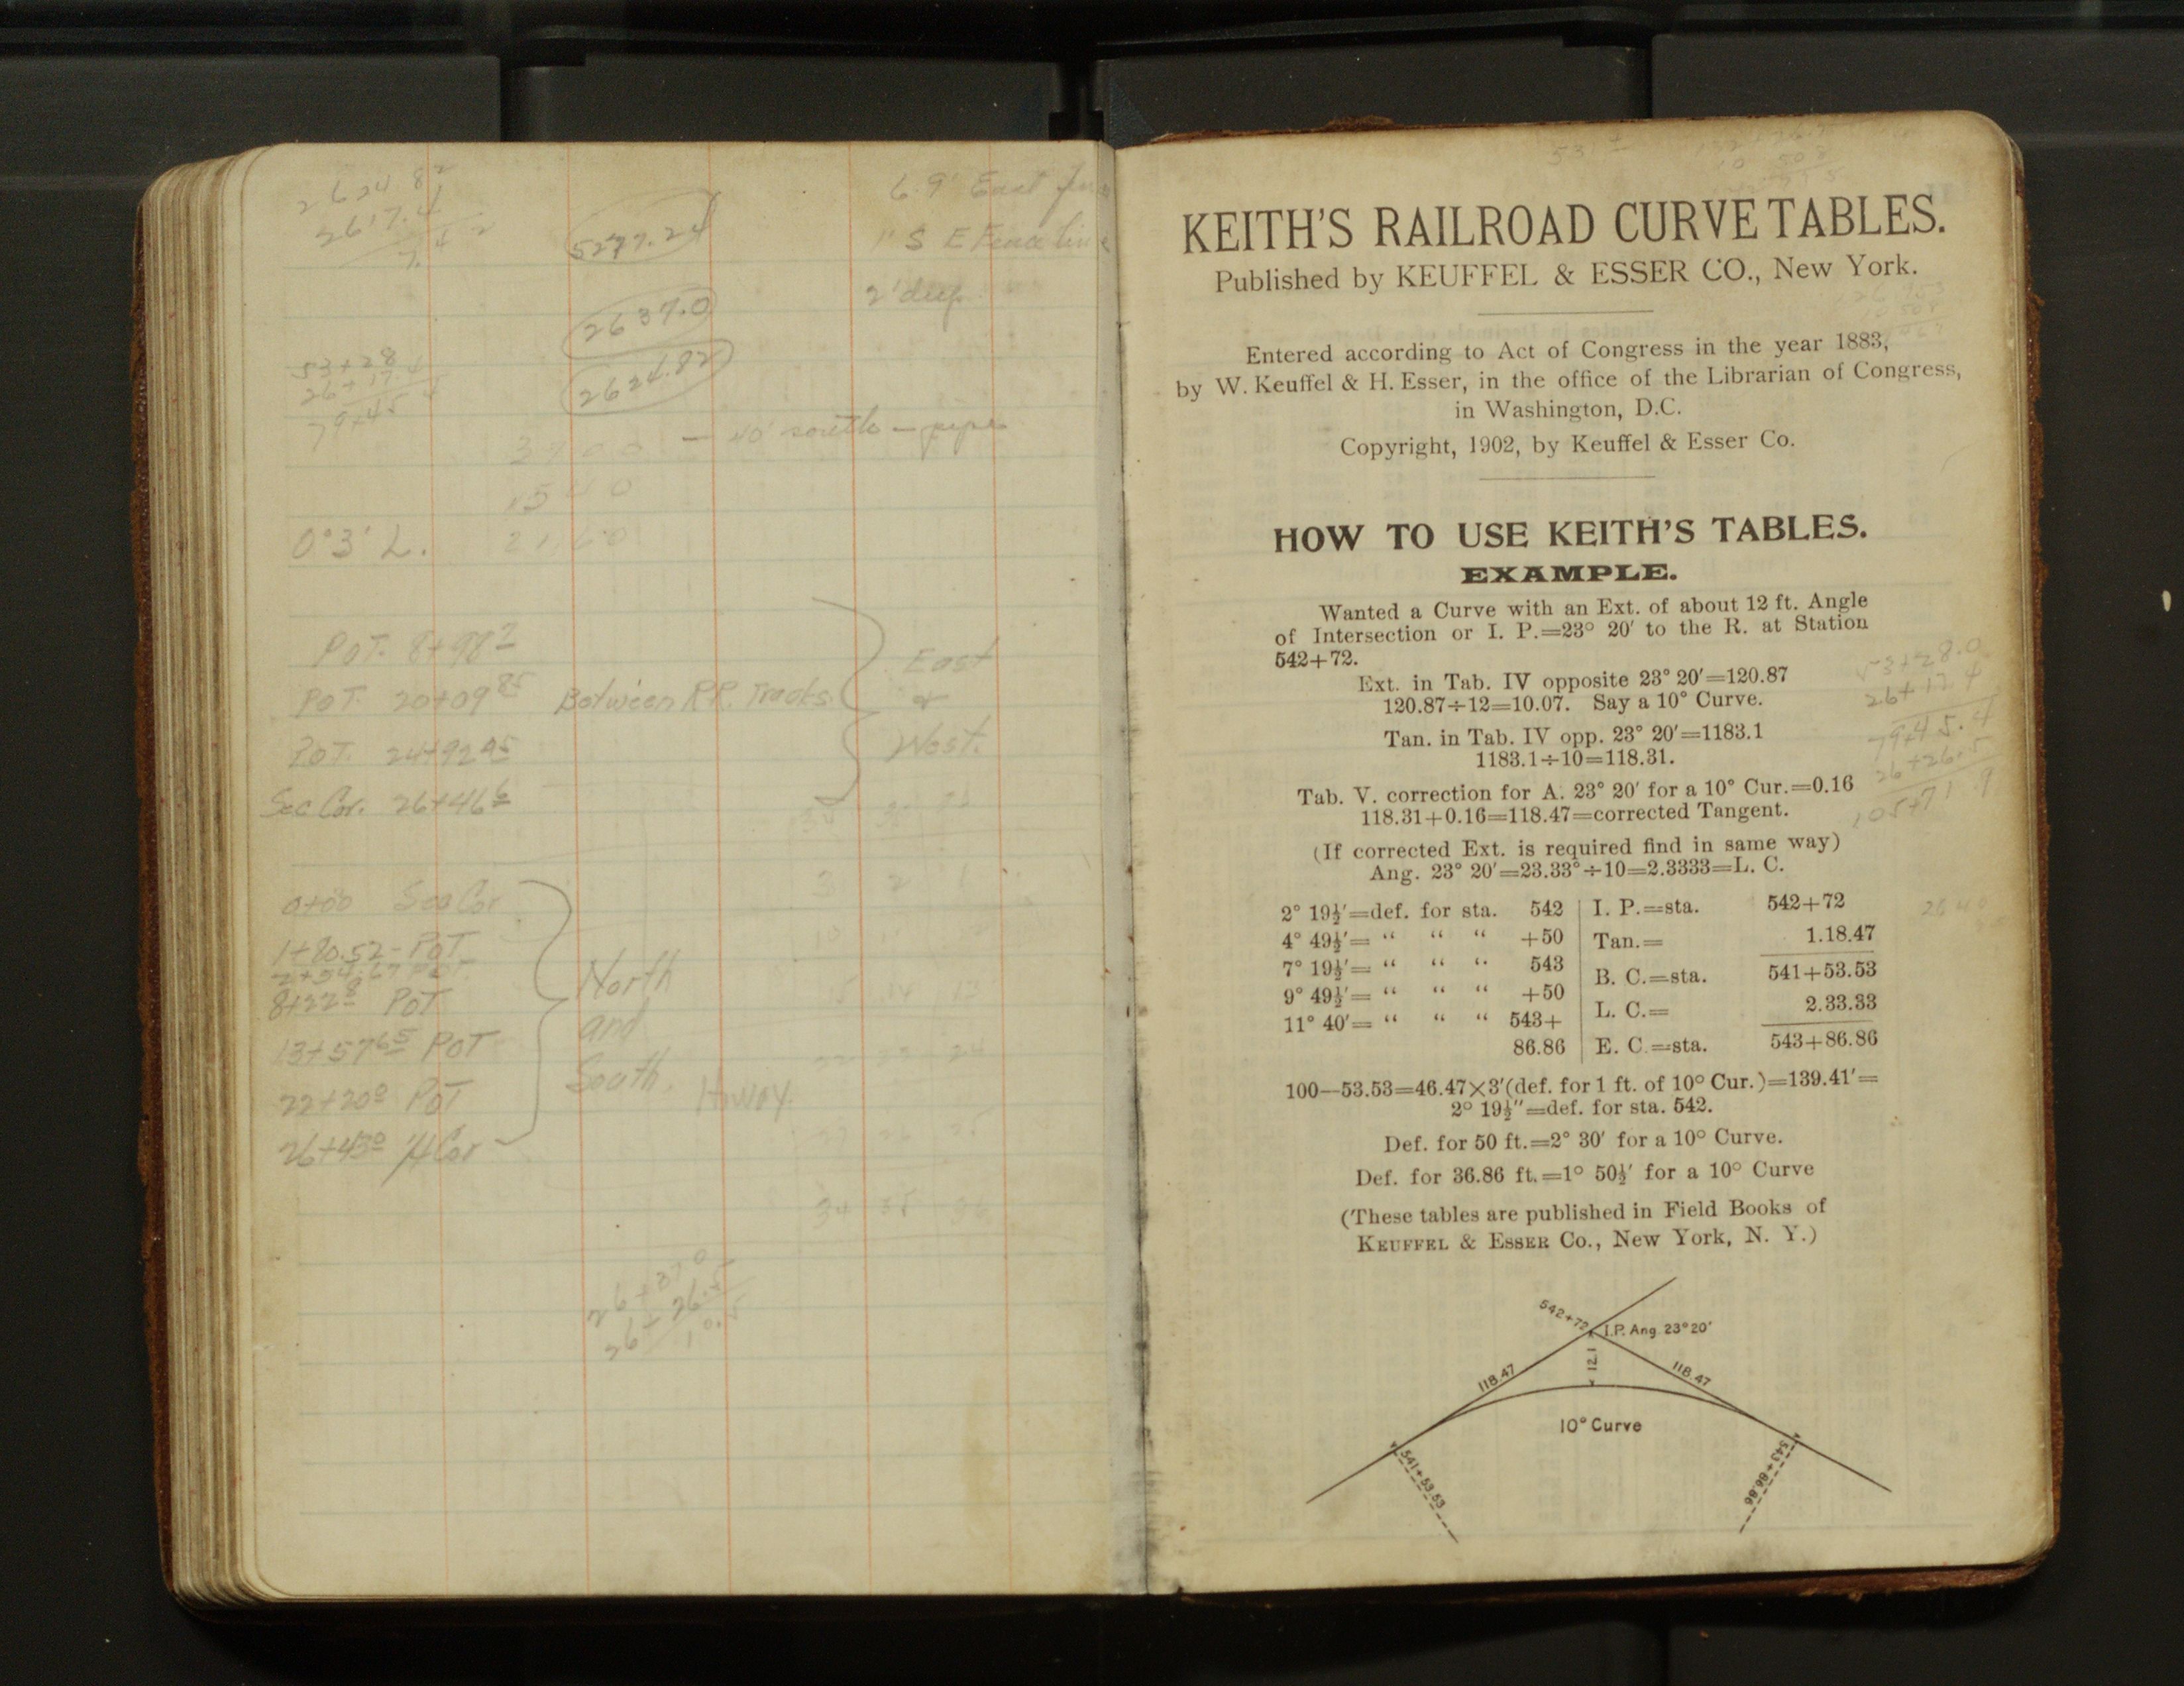 2624.82
2617.4
7.42
5277.24
2637.0
2624.82
6.9' East
1' S E Fence line
2' deep
53+28
26+17.4
79+45.4
3700 — 40' south — pipe
1540
2160
0°3' L.
POT. 8+98²
POT. 20+09⁸⁵ Between R.R. Tracks.
POT. 24+92⁹⁵
Sec Cor. 26+46⁶
East
&
West.
0+00 Sec Cor
1+80.52 - POT
2+54.67 POT.
8+22⁸ POT
13+57⁶⁵ POT
22+20⁰ POT
26+43⁰ 1/4 Cor
North
and
South.
34 35 36
26+37.0
26+26.5
10.5
KEITH'S RAILROAD CURVE TABLES.
Published by KEUFFEL & ESSER CO., New York.
Entered according to Act of Congress in the year 1883,
by W. Keuffel & H. Esser, in the office of the Librarian of Congress,
in Washington, D.C.
Copyright, 1902, by Keuffel & Esser Co.
HOW TO USE KEITH'S TABLES.
EXAMPLE.
Wanted a Curve with an Ext. of about 12 ft. Angle
of Intersection or I. P.=23° 20′ to the R. at Station
542+72.
Ext. in Tab. IV opposite 23° 20′=120.87
120.87÷12=10.07. Say a 10° Curve.
Tan. in Tab. IV opp. 23° 20′=1183.1
1183.1÷10=118.31.
Tab. V. correction for A. 23° 20′ for a 10° Cur.=0.16
118.31+0.16=118.47=corrected Tangent.
(If corrected Ext. is required find in same way)
Ang. 23° 20′=23.33°÷10=2.3333=L. C.
2° 19½′=def. for sta. 542
4° 49½′= “ “ “ +50
7° 19½′= “ “ “ 543
9° 49½′= “ “ “ +50
11° 40′= “ “ “ 543+
86.86
I. P.=sta. 542+72
Tan.= 1.18.47
B. C.=sta. 541+53.53
L. C.= 2.33.33
E. C.=sta. 543+86.86
100—53.53=46.47×3′(def. for 1 ft. of 10° Cur.)=139.41′=
2° 19½″=def. for sta. 542.
Def. for 50 ft.=2° 30′ for a 10° Curve.
Def. for 36.86 ft.=1° 50½′ for a 10° Curve
(These tables are published in Field Books of
KEUFFEL & ESSER Co., New York, N. Y.)
542+72
I.P. Ang. 23°20′
118.47
12.1
118.47
10° Curve
541+53.53
543+86.86
53+28.0
26+17.4
79+45.4
26+26.5
105+71.9
2640